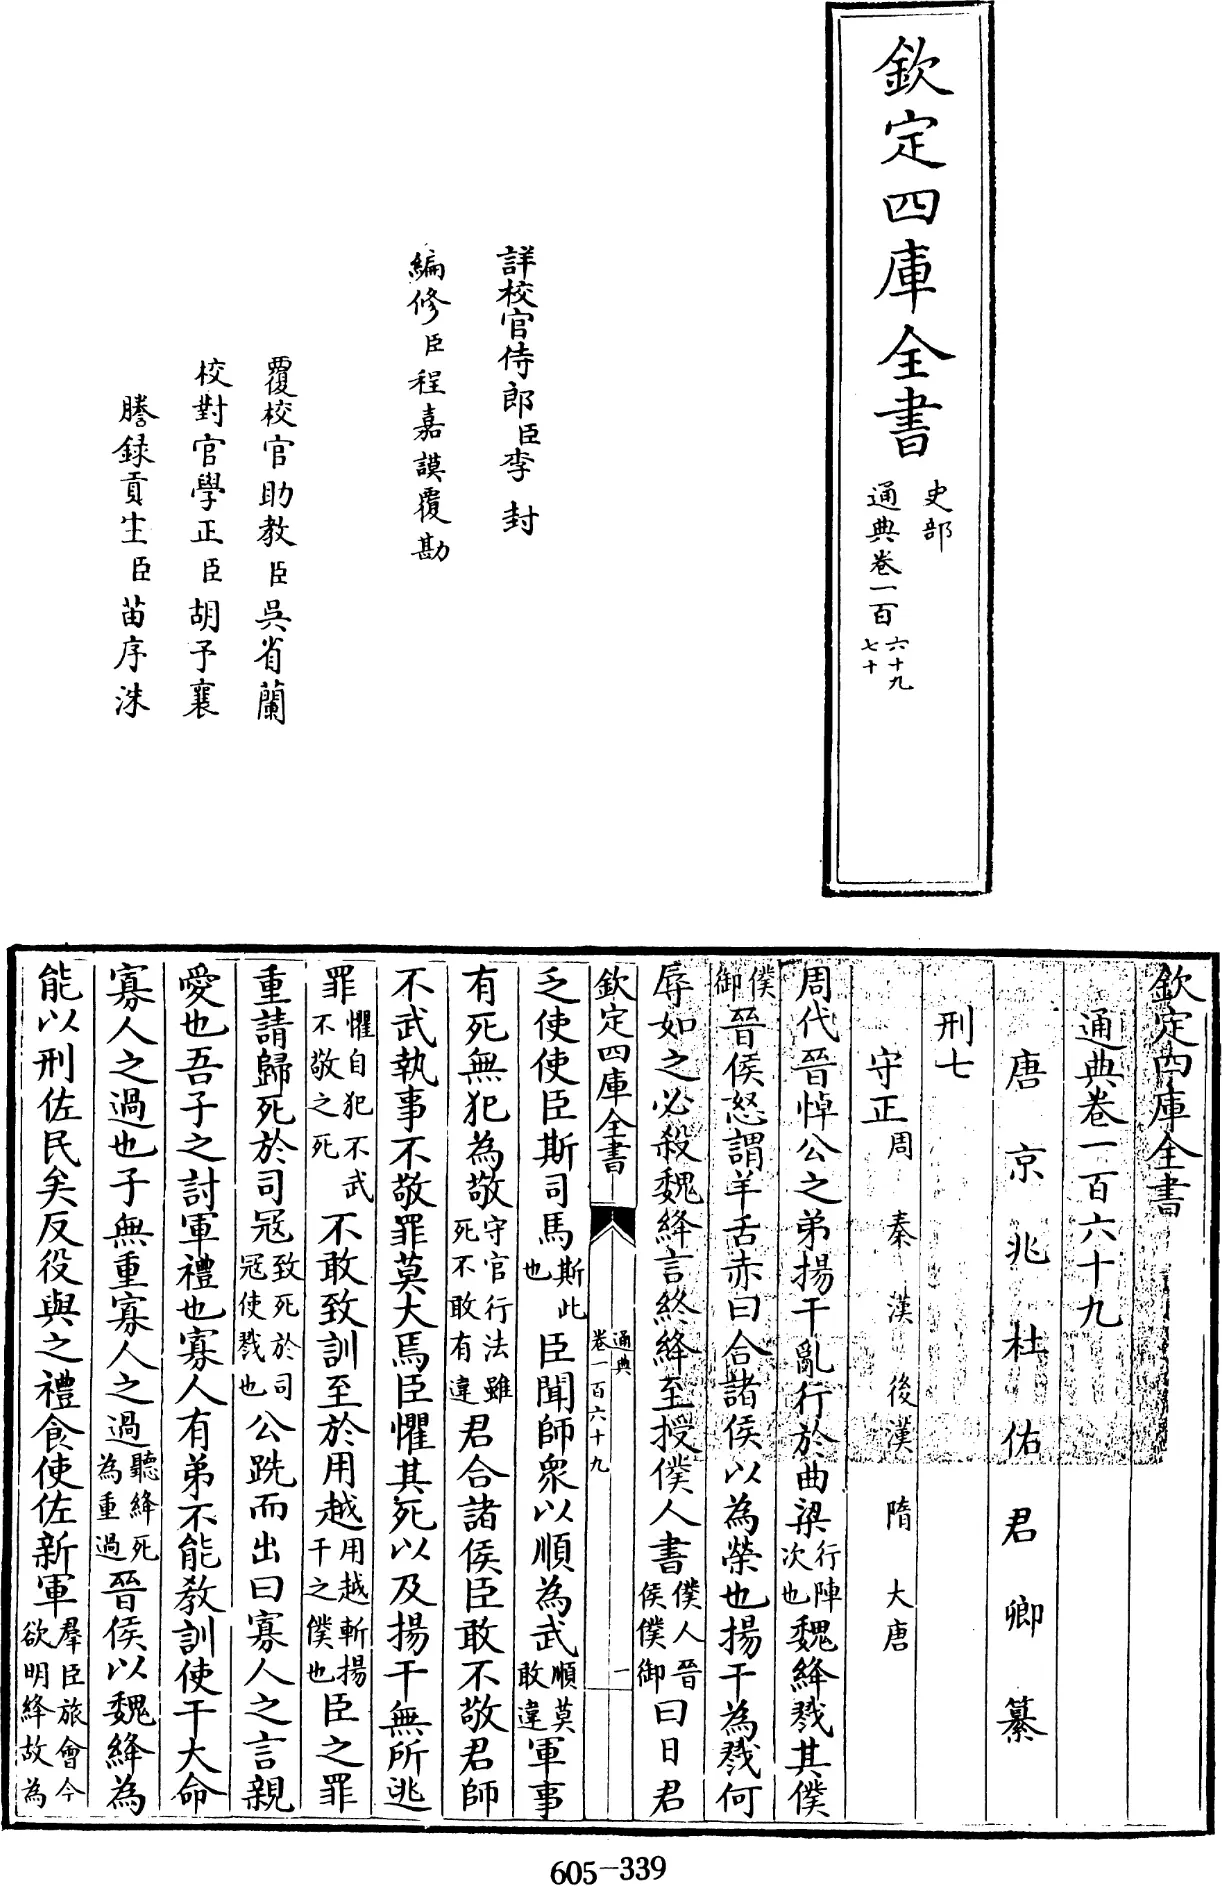 欽定四庫全書
史部
通典卷一百六十九
七十
詳校官侍郎臣李封
編修臣程嘉謨覆勘
覆校官助教臣吳省蘭
校對官學正臣胡予襄
謄録貢生臣苗序洙
欽定四庫全書
通典卷一百六十九
唐京兆杜佑君卿纂
刑七
守正周秦漢後漢隋大唐
周代晉悼公之弟揚干亂行於曲梁行陣次也魏絳戮其僕
僕御晉侯怒謂羊舌赤曰合諸侯以為榮也揚干為戮何
辱如之必殺魏絳言終絳至授僕人書僕人晉侯僕御曰日君
欽定四庫全書
通典
卷一百六十九
一
乏使使臣斯司馬斯此也臣聞師衆以順為武順莫敢違軍事
有死無犯為敬守官行法雖死不敢有違君合諸侯臣敢不敬君師
不武執事不敬罪莫大焉臣懼其死以及揚干無所逃
罪懼自犯不武不敬之死不敢致訓至於用越用越斬揚干之僕也臣之罪
重請歸死於司冦致死於司冦使戮也公跣而出曰寡人之言親
愛也吾子之討軍禮也寡人有弟不能教訓使干大命
寡人之過也子無重寡人之過聽絳死為重過晉侯以魏絳為
能以刑佐民矣反役與之禮食使佐新軍羣臣旅會今欲明絳故為
605-339